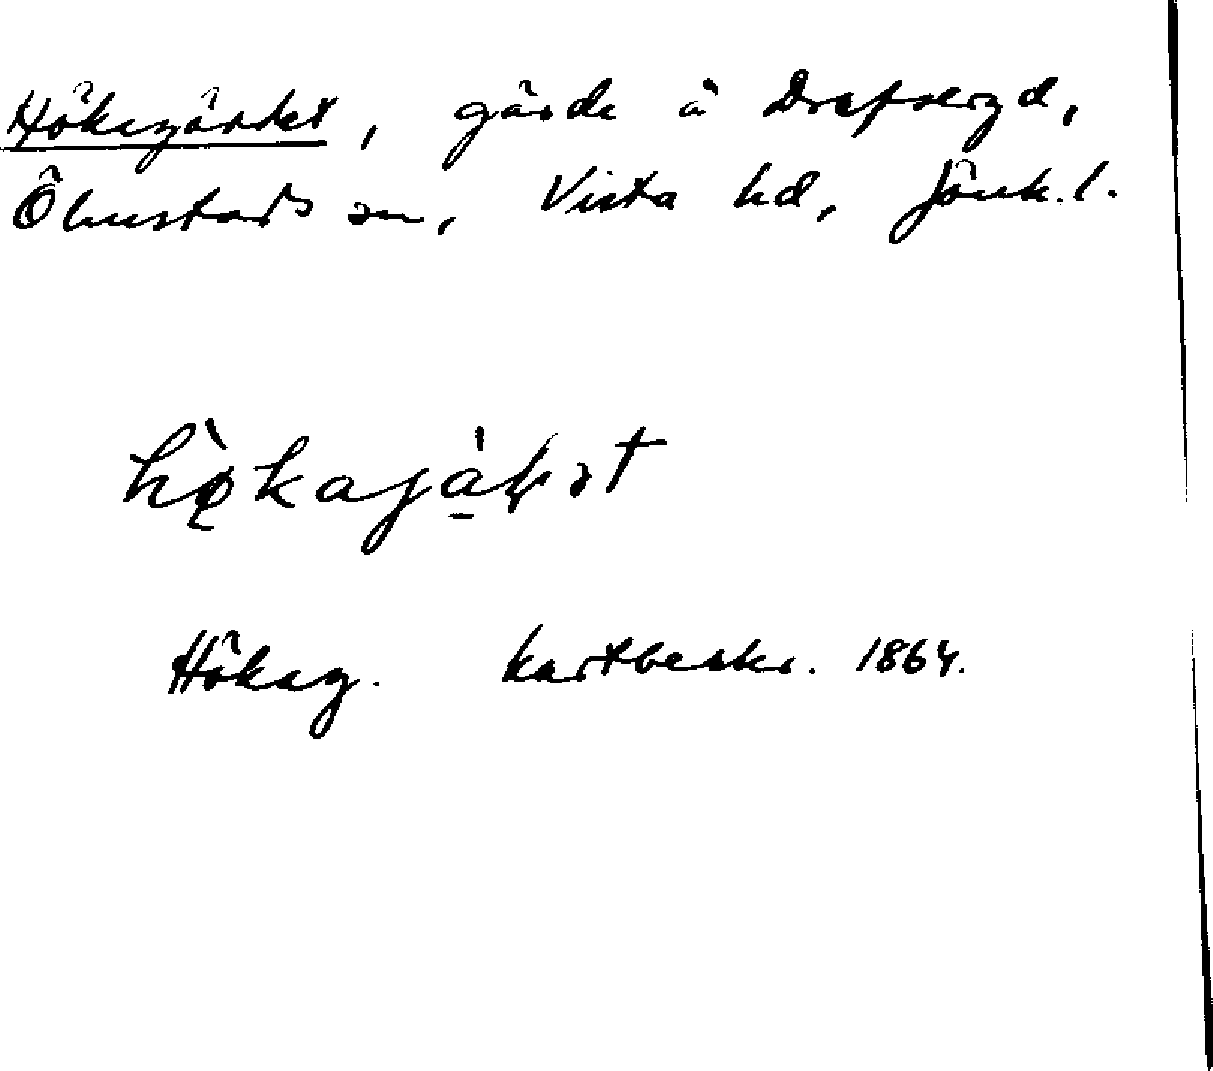 Hökagärdet, gärde å Drafveryd,
Ölmstads sn, Vista hd, Jönk. l.
Hökag. kartbeskr. 1864.